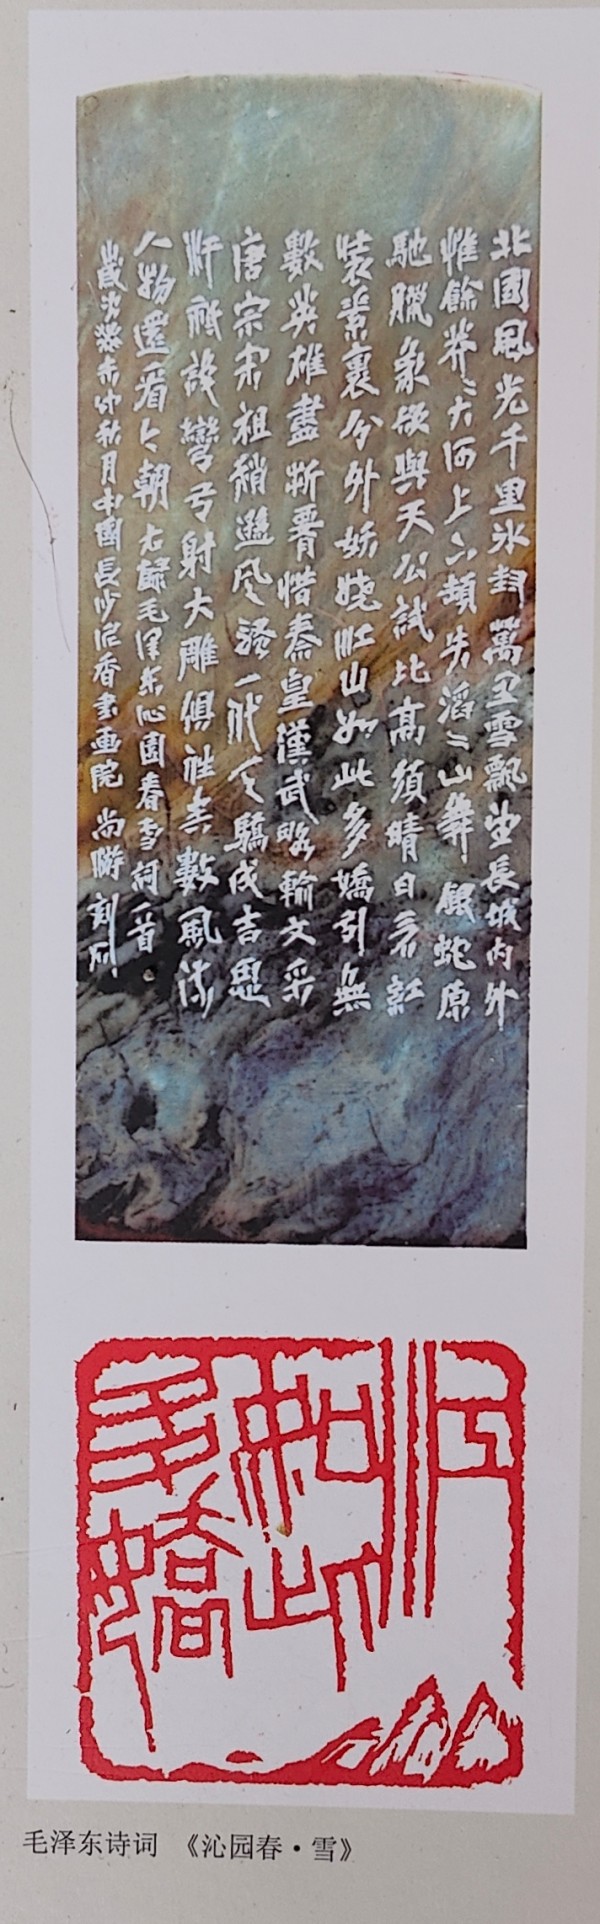 北國風光千里冰封萬里雪飄望長城内外
惟餘莽〻大河上下頓失滔〻山舞銀蛇原
馳臘象欲與天公試比高須晴日看紅
裝素裹分外妖嬈江山如此多嬌引無
數英雄盡折腰惜秦皇漢武略輸文采
唐宗宋祖稍遜風騷一代天驕成吉思
汗祗識彎弓射大雕俱往矣數風流
人物還看今朝 右錄毛澤東沁園春雪詞一首
歲次癸未仲秋月中國長沙香書画院 尚刻石
江山
如此
多嬌
毛泽东诗词 《沁园春·雪》